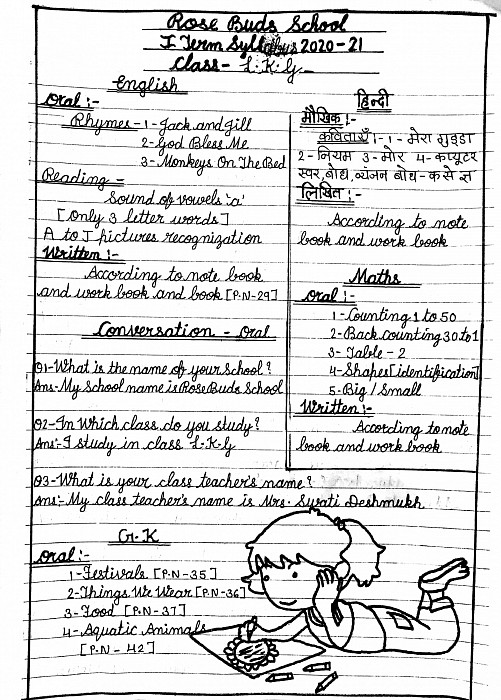 Rose Buds School
I Term Syllabus 2020-21
Class- L.K.G
English
Oral :-
Rhymes - 1 - Jack and Jill
2 - God Bless Me
3 - Monkeys On The Bed
Reading -
Sound of vowels 'a'
[Only 3 letter words]
A to J pictures recognization
Written :-
According to note book
and work book and book [P.N-29]
हिन्दी
मौखिक :-
कविताएँ :- 1 - मेरा गुड्डा
2 - नियम 3 - मोर 4 - कम्प्यूटर
स्वर, बोध, व्यंजन बोध - क से ज्ञ
लिखित :-
According to note
book and work book
Maths
Oral :-
1 - Counting 1 to 50
2 - Back counting 30 to 1
3 - Table - 2
4 - Shapes [identification]
5 - Big / Small
Written :-
According to note
book and work book
Conversation - Oral
Q1 - What is the name of your School ?
Ans - My School name is Rose Buds School
Q2 - In Which class do you study ?
Ans :- I study in class L.K.G
Q3 - What is your class teacher's name ?
Ans :- My class teacher's name is Mrs. Swati Deshmukh
G.K
Oral :-
1 - Festivals [P.N-35]
2 - Things We Wear [P.N-36]
3 - Food [P.N-37]
4 - Aquatic Animals
[P.N - 42]